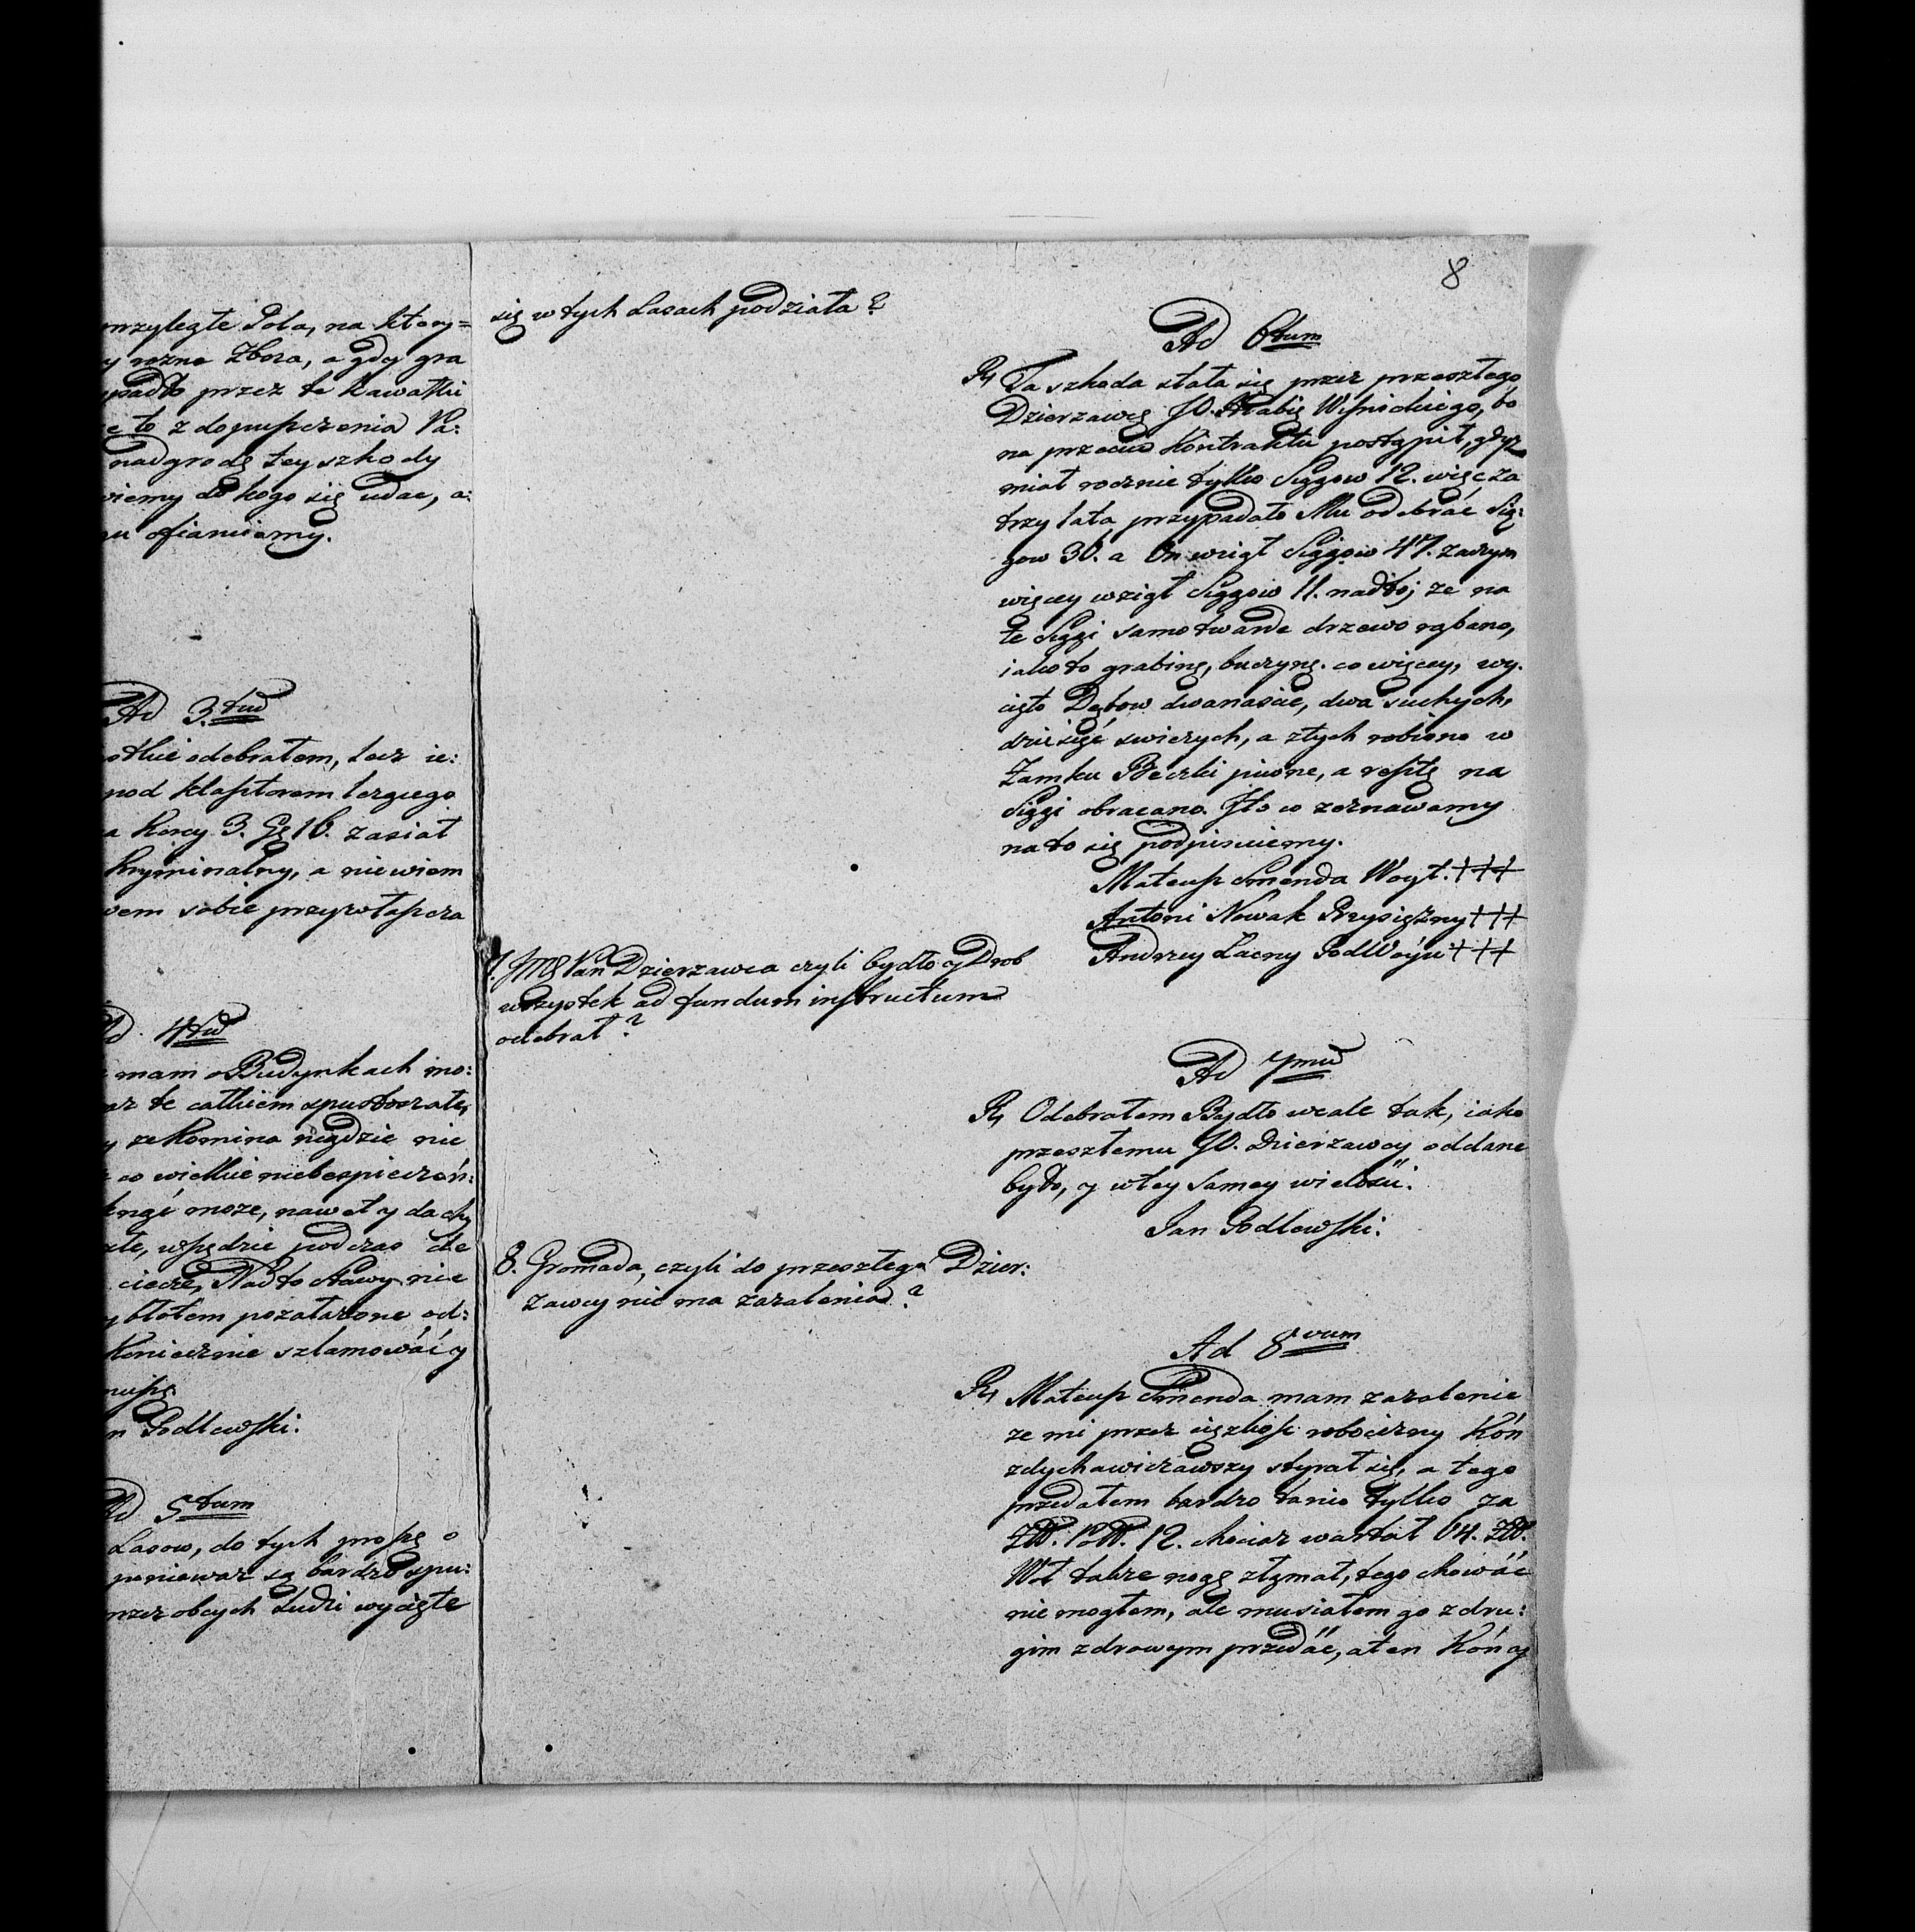 przyległe Pola, na ktory=
y rozne Zboza, a gdy gra
ypadło przez te kawałki
e to z dopuszczenia Pa:
nadgrodę tey szkody
wiemy do kogo się udac, a:
ofiaruiemy.
Ad 3.tium
odebrałem, lecz ie:
pod klasztorem lezącego
a Korcy 3. G 16. zasiał
Kryminalny, a niewiem
wem sobie przywłaszcza
Ad 4tum
mam o Budynkach mo:
te całkiem spustoszałe,
y ze Komina nigdzie nie
co wielkie niebespieczeń:
moze, nawet y dachy
wszędzie podczas de
ciecze, Nad to Stawy nie
y błotem pozatarzone od:
Koniecznie szlamować y
muszę.
n Godlewski.
Ad 5tum
Lasow, do tych proszę o
poniewaz są bardzo spu:
przez obcych Ludzi wycięte
się w tych Lasach podziała?
7. JMP Pan Dzierzawca czyli bydło y Drob
wszystek ad fundum instructum
odebrał?
8. Gromada, czyli do przeszłego Dzier:
zawcy nie ma zazalenia?
8
Ad 6tum
Rs Ta szkoda stała się przez przeszłego
Dzierzawcę JO. Hrabię Wisnickiego, bo
na przeciw Kontraktu postąpił, gdyz
miał rocznie tylko Sągow 12. więc za
trzy lata przypadało Mu odebrać Są:
gow 36. a On wziął Sągow 47. zaczym
więcey wziął Sągow 11. nadto, ze na
te Sągi samo twarde drzewo rąbano,
iako to grabinę, buczynę. co więcey, wy:
cięto Dębow dwanascie, dwa suchych,
dziesięć swiezych, a z tych robiono w
Zamku Beczki piwne, a resztę na
Sągi obracano. Jto co zeznawamy
na to się podpisuiemy.
Mateusz Smenda Woyt. +++
Antoni Nowak Przysięzny +++
Andrzey Lacny PodWoyci +++
Ad 7mum
Rs Odebrałem Bydło wcale tak, iako
przeszłemu JO. Dzierzawcy oddane
było, y w tey samey wielości.
Jan Godlewski.
Ad 8vum
Rs Mateusz Smenda mam zazalenie
ze mi przez cięzkość robocizny Koń
zdychawiczawszy styrał się, a tego
przedałem bardzo tanio tylko za
12. chociaz wartał 64.
Woł takze nogę złamał, tego chować
nie mogłem, ale musiałem go z dru:
gim zdrowym przedać, a ten Koń y